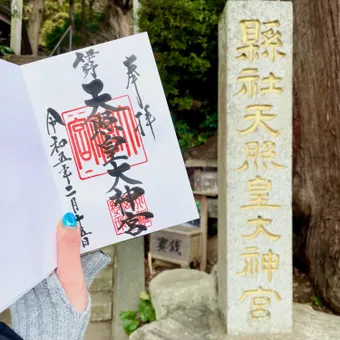 奉拝
佐野
天照皇大神宮
令和五年二月十五日
縣社天照皇大神宮
賽銭